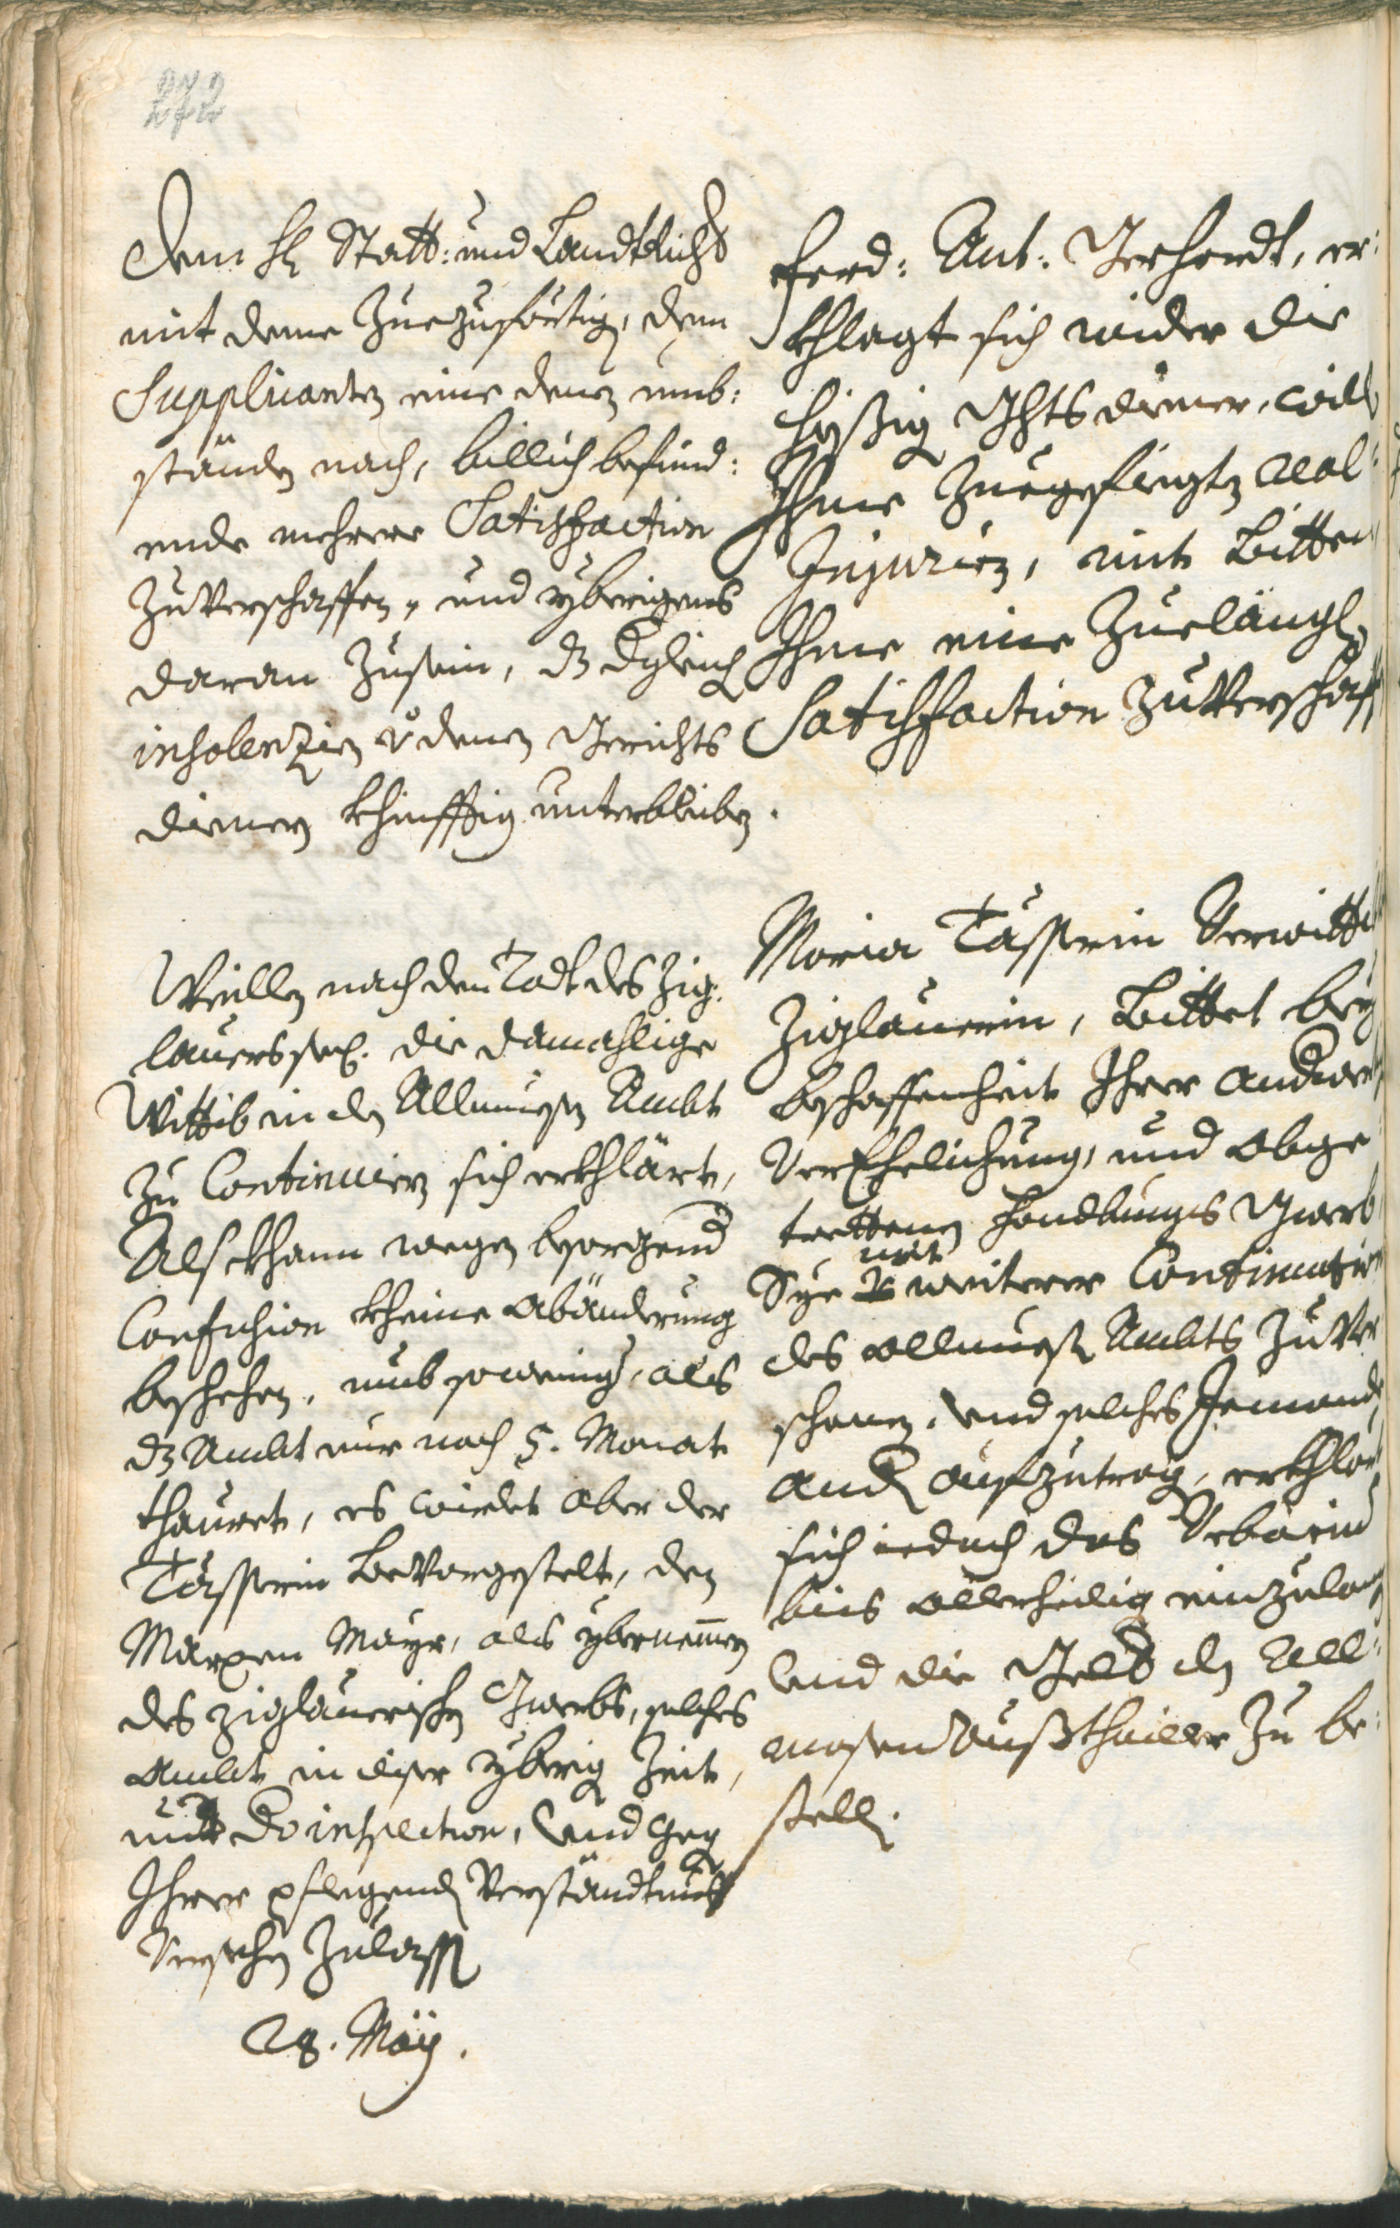 272
Dem H Statt: und Landtrichter
mit deme Zuezuförtigen, dem
Supplicanten eine denen umb:
ständen nach, billich befind:
ende mehrere Satisfaction
Zuverschaffen, und yberigens
daran Zusein, dz dgleichen
insolenzien v denen Gerichts
dienern khünfftig unterbleiben.
Ferd: Ant: Gerhardt, er:
khlagt sich wider die
hießige Ghtsdiener, weillen
Ihme Zuegefiegten Real:
Injurien, mit Bitten
Ihme eine Zuelängl.
Satisfaction Zuverschaffen
Weillen nach den Todt des Zig:
lauers seel. die damahlige
Wittib in den Allmuesen Ambt
Zu Continuiern sich erkhlärt,
Als khann wegen besorgend
Confusion kheine abänderung
beschehen, umb soweniger, als
dz Ambt nur noch 5. Monat
thauret, es wirdet aber der
Tasserin bevorgestelt, den
Marxen Mayr, als ybernemmer
des Ziglauerischen Gwerbs, solches
Ambt in diser yberigen Zeit,
unter Do inspection, und gegen
Ihrer pflegenden Verständtnus
Versehen Zulassen
28. Maÿ.
Maria Tasserin Verwittibte
Ziglauerin, Bittet bey
beschaffenheit Ihrer andwerten
VerEhelichung, und abge:
trettenen handlungs Gwerb
Sye mit weiterer Continuation
des allmuesen Ambts Zu Ver:
schonen, und solches Jemanden
andern aufzutragen, erkhlärt
sich iedoch das Urbarium
biss allerheiligen einzulangen
und die Gelter den All:
mosen Außthailler Zu be:
stellen.